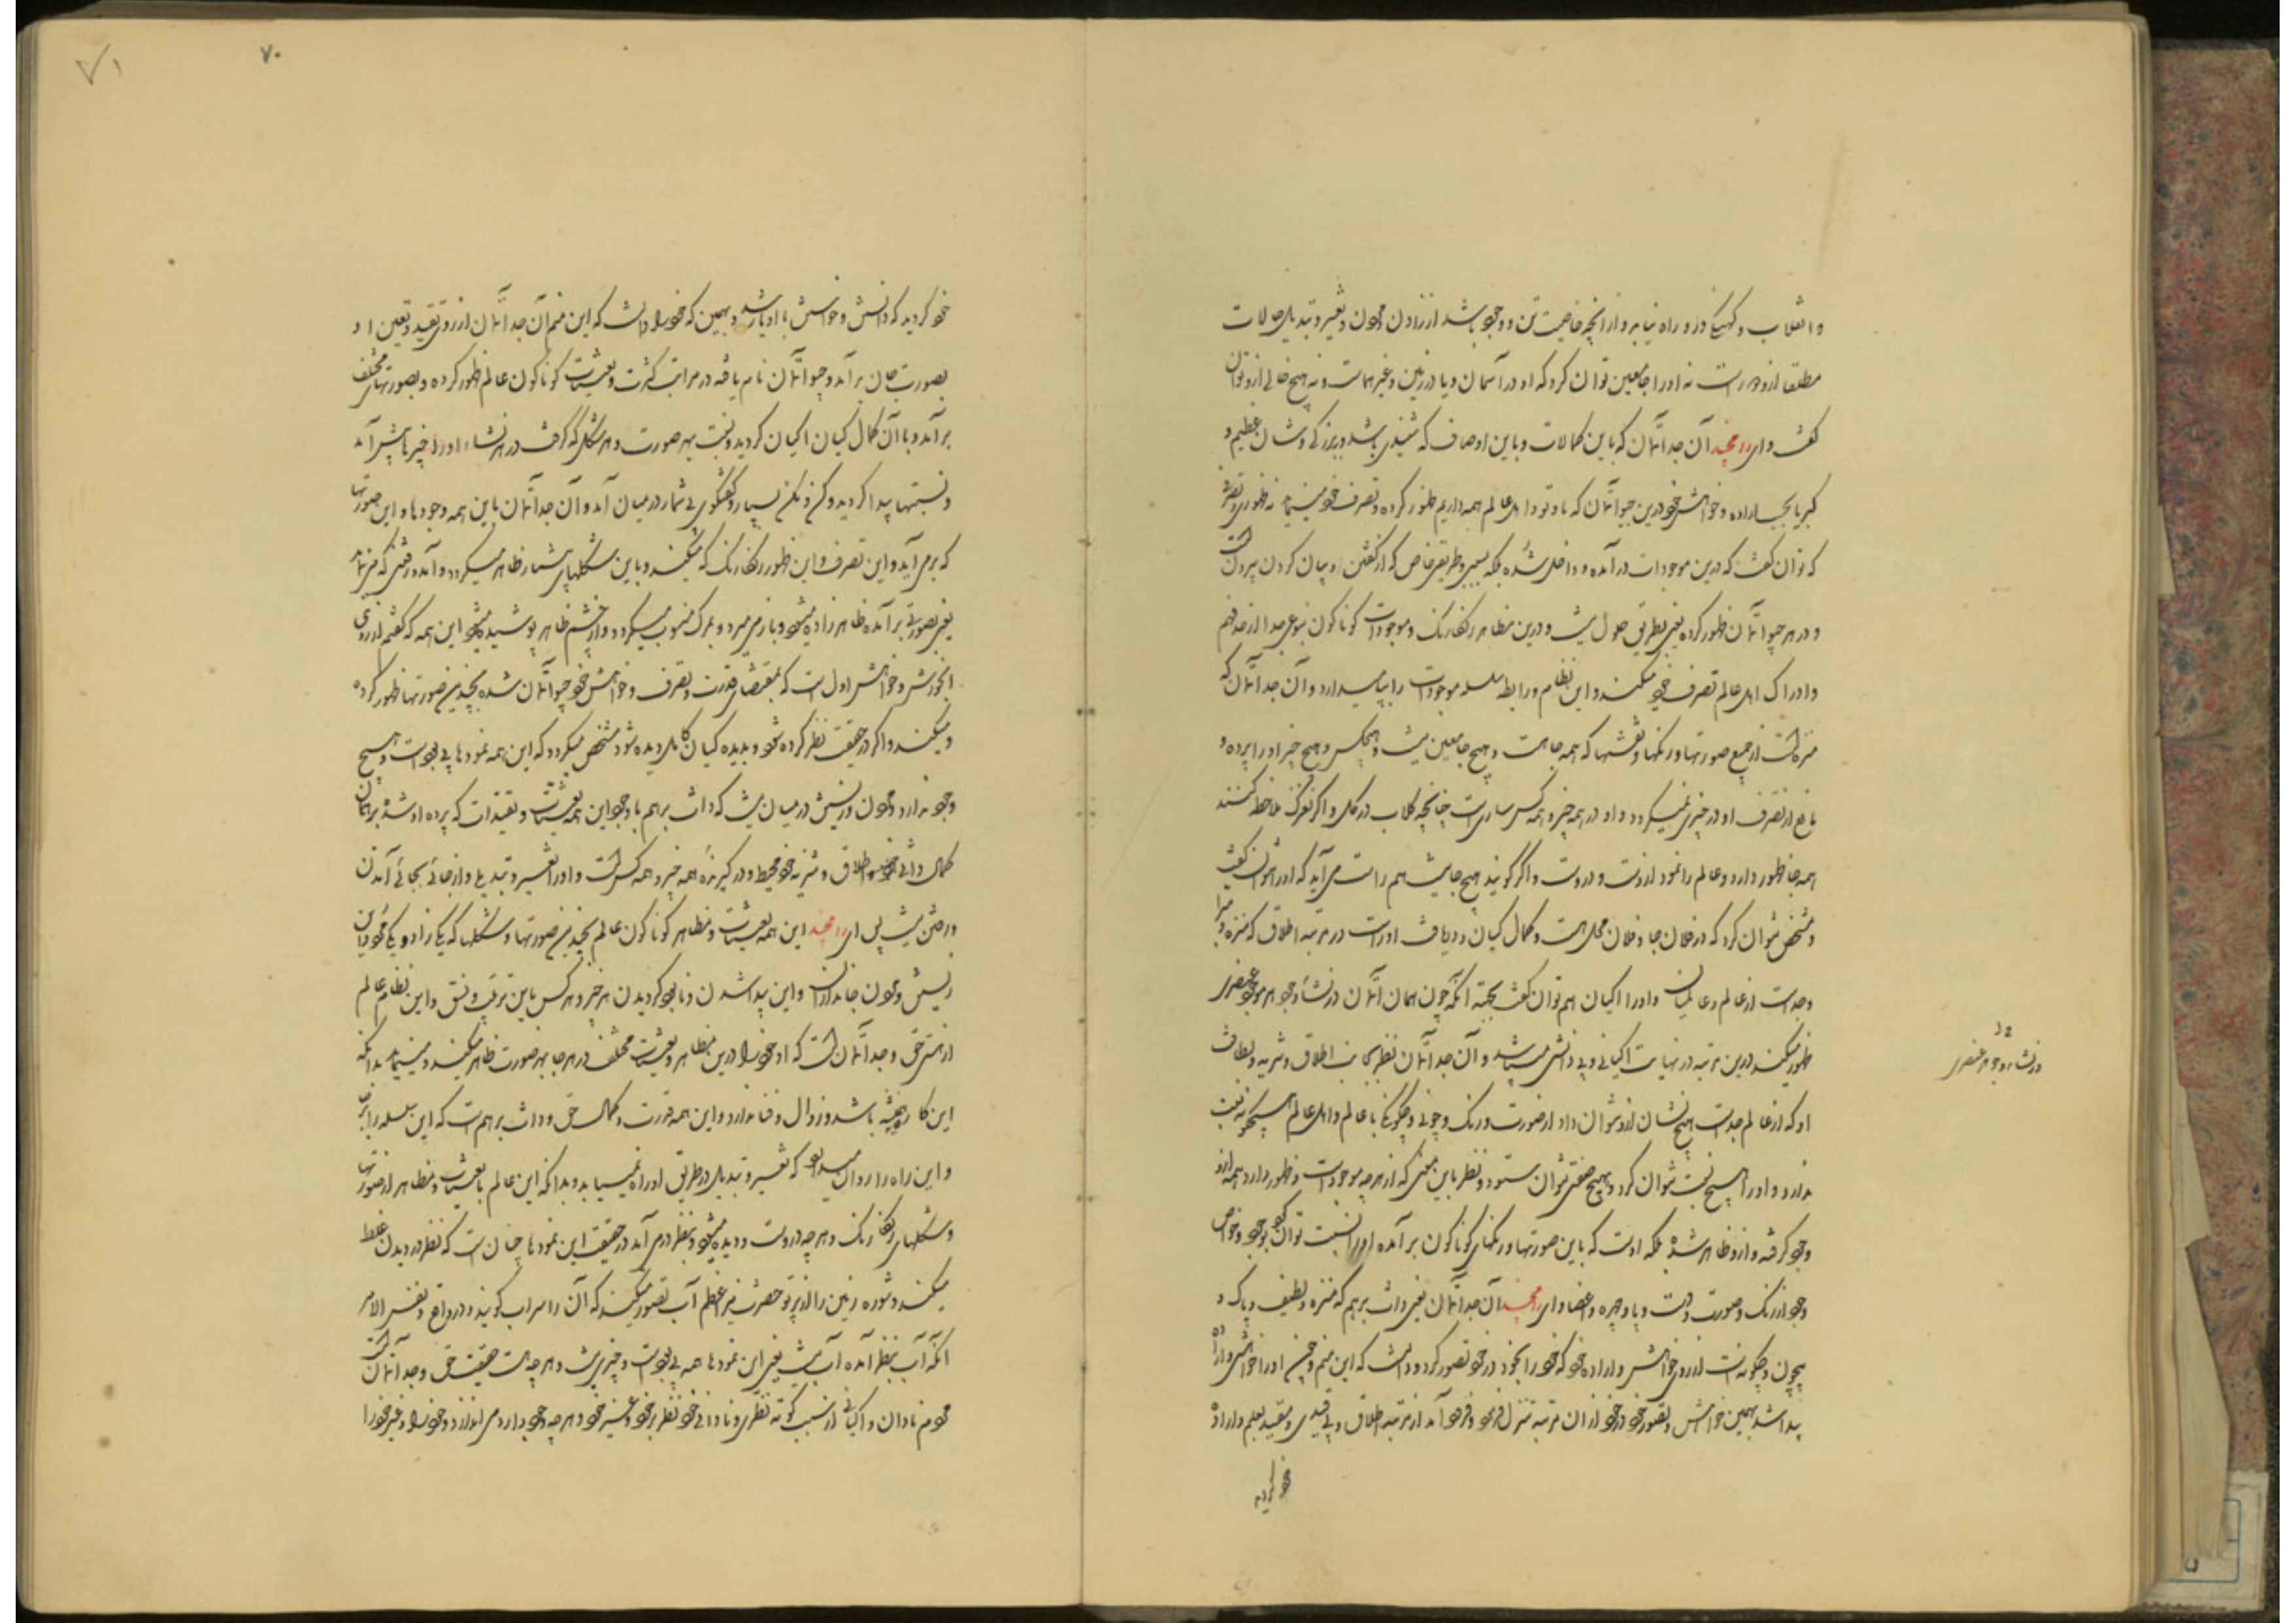 و انقلاب و کهنگی درو راه نیابد و از آنچه خاصیت تن و وجود باشد از زادن و مردن و تغییر و تبدیل حالات
مطلقا ازو دور است نه او را جا معین توان کرد که او در آسمان و یا در زمین و غیر هماست و نه هیچ جا خالی ازو توان
گفت و ای رامچند آن جدآتمان که باین کمالات و باین اوصاف که شنیدی باشد و بزرگی و شان عظیم و
کبریا بحسب اراده و خواهش خود درین جیوآتمان که ما و تو و اهل عالم همه داریم ظهور کرده و تصرف خود مینماید نه ظهوری و تصرفی
که توان گفت که درین موجودات در آمده و داخل شده بلکه بسیر و طریق خاص که از گفتن و بیان کردن بیرون است
و در هر جیوآتمان ظهور کرده یعنی بطریق حلول نیست و درین مظاهر رنگارنگ و موجودات گوناگون بنوعی جدا از فهم
و ادراک اهل عالم تصرف خود میکند و این نظام و رابطه سلسله موجودات را بپا میدارد و آن جدآتمان که
منزه است از جمیع صورتها و رنگها و نقشها که همه جا هست و هیچ جا معین نیست و هیچکس و هیچ چیز او را پرده و
مانع از تصرف او در چیزی نمیگردد و او در همه چیز و همه کس ساری است چنانچه گلاب در گل و اگر بغور ملاحظه کنند
همه جا ظهور دارد و عالم را نمود ازوست و دروست و اگر گویند هیچ جا نیست هم راست می آید که او را نتوان گفت
و مشخص نتوان کرد که در فلان جا و فلان محل هست و کمال گیان و دریافت او راست در مرتبه اطلاق که منزه و مبرا
و جداست از عالم و عالمیان و او را اگیان هم توان گفت بجهة آنکه چون همان آتمان در نشاء وجود هر موجود عنصری
ظهور میکند درین مرتبه در نهایت اگیانی و بی دانشی میباشد و آن جدآتمان نظر بجانب اطلاق و تنزیه و لطافت
او که از عالم جداست هیچ نشان ازو نتوان داد از صورت و رنگ و چونی و چگونگی با عالم و اهل عالم هیچگونه نسبت
ندارد و او را هیچ نسبت نتوان کرد و بهیچ صفتی نتوان ستود و نظر باین معنی که از هر چه موجود است و ظهور دارد همه ازو
وجود گرفته و ازو ظاهر شده بلکه اوست که باین صورتها و رنگهای گوناگون بر آمده او را نسبت توان کرد بوجود و خواص
وجود از رنگ و صورت و دست و پا و چهره و اعضا و ای رامچند آن جدآتمان یعنی ذات برهم که منزه و لطیف و پاک و
بیچون و چگونه است از روی خواهش و اراده خود که خود را بخود در خود تصور کرد و دانست که این منم و چنین او را خواهش و اراده
پیدا شد بهمین خواهش و تصور خود در خود از ان مرتبه تنزل فرمود و فرود آمد از مرتبه اطلاق و بی قیدی و مقید بعلم و اراده
خود گردید
در نشاء وجود هر عنصری
۷۰
۷۱
خود گردید که دانش و خواهش با او یار شد و بهمین که خود را دانست که این منم آن جدآتمان از روی تقید و تعین او
بصورت جان بر آمد و جیوآتمان نام یافته در مراتب کثرت و تعینات گوناگون عالم ظهور کرده و بصورتهای مختلف
بر آمد و با آن کمال گیان اگیان گردید و نسبت بهر صورت و هر شکل که گرفت در هر نشاء او را چیزها پیش آمد
و نسبتها پیدا کردید و کن و مکن بسیار و گفتگوی بی شمار در میان آمد و آن جدآتمان باین همه وجودها و این صورتها
که بر می آید و این تصرف و این ظهور رنگارنگ که میکند و باین شکلهای بیشمار ظاهر میگردد و آمد و رفتی که مینماید
یعنی بصورتی بر آمده ظاهر زاده میشود و باز میمیرد و بمرک منسوب میگردد و از چشم ظاهر پوشیده میشود این همه که گفتم از روی
آن خواهش اول است که بمقتضای قدرت و تصرف و خواهش خود جیوآتمان شده بچندین صورتها ظهور کرده
و میکند و اگر در حقیقت نظر کرده شود و بدیده گیان کامل دیده شود مشخص میگردد که این همه نمودها بی بود است و هیچ
وجود ندارد و مردن و زیستن در میان نیست که ذات برهم با وجود این همه تعینات و تقیدات که پرده او شده بر همان
کمال ذاتی خود و اطلاق و تنزیه خود محیط و در گیرنده همه چیز و همه کس است و او را تغییر و تبدیل و از جائی بجائی آمدن
و رفتن نیست پس ای رامچند این همه تعینات و مظاهر گوناگون عالم بچندین صورتها و شکلها که یکی زاد و یکی مرد و این
زیستن و مردن جانداران و این پیدا شدن و نابود گردیدن هر چیز و هر کس باین ترتیب و نسق و این نظام عالم
از هستی حق و جدآتمان است که او خود را درین مظاهر و تعینات مختلف در هر جا بهر صورت ظاهر میکند و مینماید بدانکه
این کار همیشه باشد و زوال و فنا ندارد و این همه قدرت و کمال حق و ذات برهم است که این سلسله را بر پا
و این راه را روان میدارد که تغییر و تبدیل در طریق او راه نمییابد و بدانکه این عالم با تعینات و مظاهر از صورتها
و شکلهای رنگارنگ و هر چه دروست و دیده میشود و بنظر در می آید در حقیقت این نمودها چنان است که نظر در دیدن غلط
میکند و شوره زمین را از پرتو حضرت نیر اعظم آب تصور میکند که آن را سراب گویند و در واقع و نفس الامر
آنکه آب بنظر آمده آب نیست یعنی این نمودها همه بی بود است و چیزی نیست و هر چه هست حقیقت حق و جدآتمان است
مردم نادان و اگیانی از سبب کوته نظری و نادانی خود نظر بر خود و غیر خود و هر چه وجود دارد می اندازند و خود را و غیر خود را